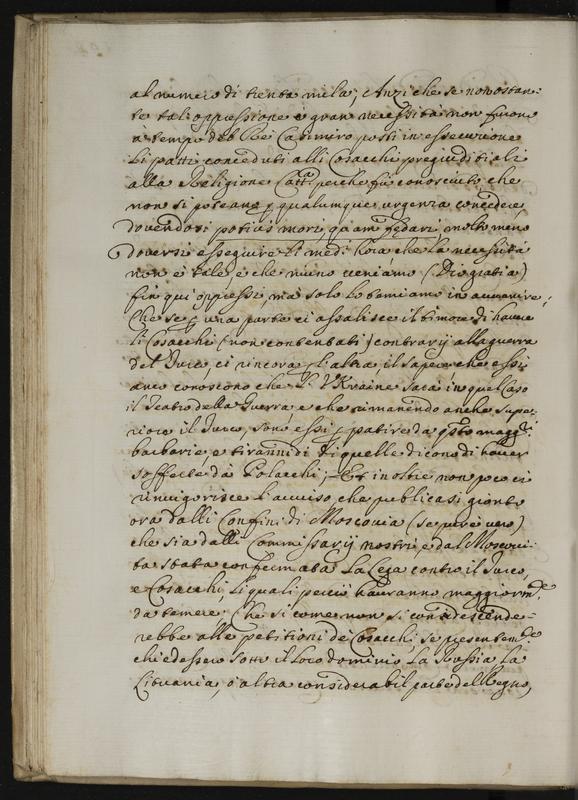 al numero di trenta mila; Anzi che se non ostan-
te tal oppressione e gran necessità non furono
à tempo del Rè Casimiro posti in essecuzione
li patti conceduti alli Cosacchi pregiuditiali
alla Religione Catt.ca perche fù conosciuto, che
non si poteano p qualunque urgenza concedere,
dovendosi potius mori, quam fędari, molto meno
doversi esseguire li med.i hora che la necessità
non è tale, e che meno veniamo (Dio gratia)
fin qui oppressi, ma solo lo temiamo in avvenire;
Che se p una parte ci assalisce il timore di havere
li Cosacchi (non contentati) contrarij alla guerra
del Turco, ci rincora p l'altra il sapere che essi
anco conoscono che l'Vkraine sarà in quel caso
il Teatro della Guerra, e che rimanendo anche supe-
riore il Turco, sono essi p patire da q.sto magg.ri
barbarie, e tirannidi di quelle dicono di haver
sofferte da Polacchi; Et in oltre non poco ci
rinvigorisce l'avviso, che publicasi gionto
ora dalli Confini di Moscovia (se pure vero)
che sia dalli Commissarij nostri e dal Moscovi-
ta stata confermata la Lega contro il Turco,
e Cosacchi, li quali perciò hauranno maggiorm.te
da temere. Che si come non si condescende-
rebbe alle petitioni de Cosacchi, se presentem.te
chiedessero sotto il loro dominio la Russia, la
Lituania, ò altra considerabil parte del Regno,